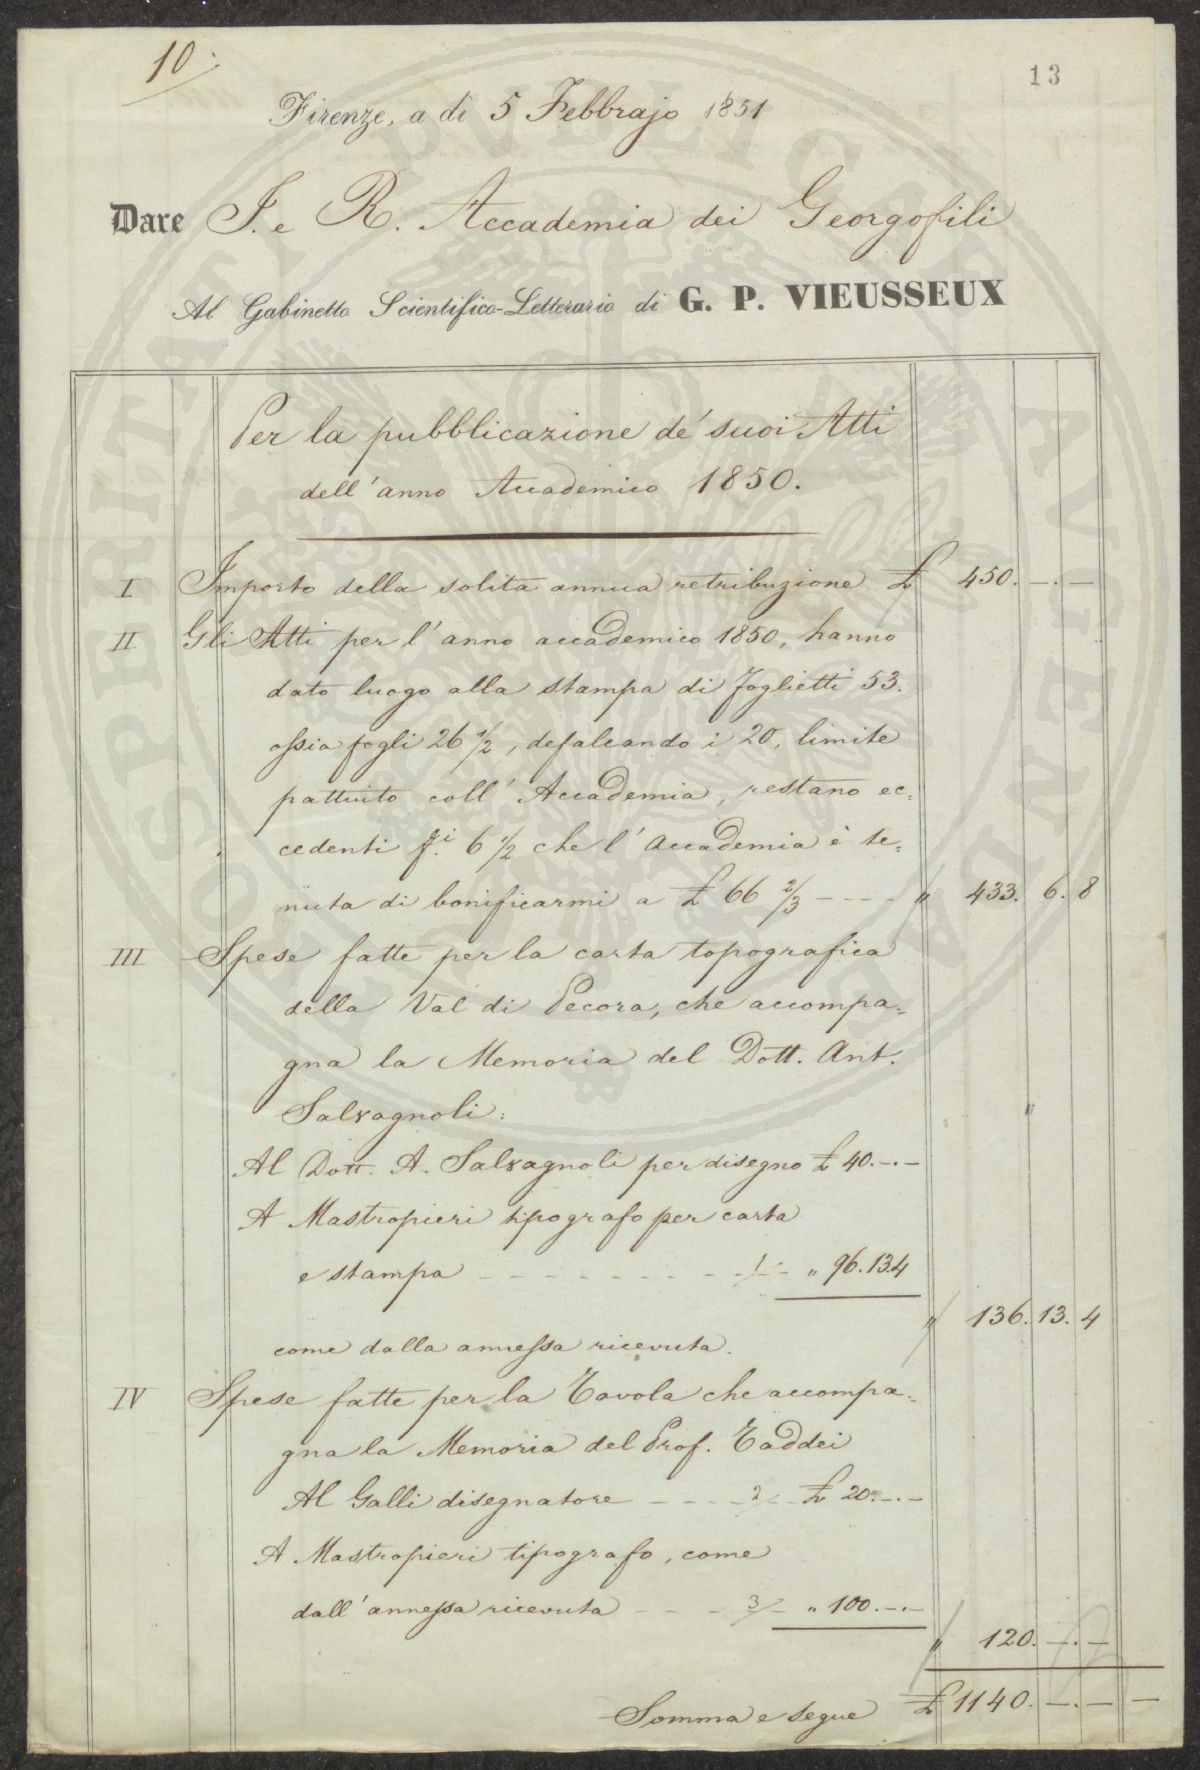 10.
13
Firenze, a dì 5 Febbrajo 1851
Dare I. e R. Accademia dei Georgofili
Al Gabinetto Scientifico-Letterario di G. P. VIEUSSEUX
Per la pubblicazione de' suoi Atti
dell'anno Accademico 1850.
I Importo della solita annua retribuzione £ 450. —. —
II Gli Atti per l'anno accademico 1850, hanno
dato luogo alla stampa di foglietti 53.
ossia fogli 26 1/2, defalcando i 20, limite
pattuito coll' Accademia, restano ec=
cedenti f.i 6 1/2 che l'Accademia è te=
nuta di bonificarmi a £ 66 2/3 - - - - " 433. 6. 8
III Spese fatte per la carta topografica
della Val di Pecora, che accompa=
gna la Memoria del Dott. Ant.
Salvagnoli:
Al Dott. A. Salvagnoli per disegno £ 40. —. —
A Mastropieri tipografo per carta
e stampa - - - - - - - - 1/ - " 96. 13. 4
" 136. 13. 4
come dalla annessa ricevuta.
IV Spese fatte per la Tavola che accompa=
gna la Memoria del Prof. Taddei
Al Galli disegnatore - - - - 2/ - £ 20. —. —
A Mastropieri tipografo, come
dall'annessa ricevuta - - - 3/ - " 100. —. —
" 120. —. —
Somma e segue £ 1140. —. — —
PROSPERITATI PUBLICAE AUGENDAE